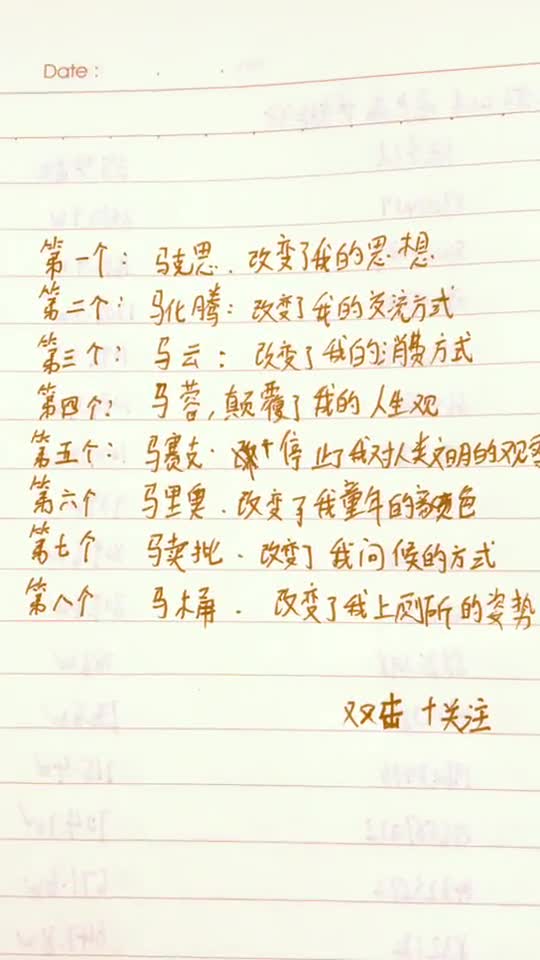 Date :
第一个: 马克思. 改变了我的思想
第二个: 马化腾: 改变了我的交流方式
第三个: 马云: 改变了我的消费方式
第四个: 马蓉, 颠覆了我的人生观
第五个: 马赛克. 停止了我对人类文明的观察
第六个 马里奥. 改变了我童年的颜色
第七个 马卖批. 改变了我问候的方式
第八个 马桶. 改变了我上厕所的姿势
双击十关注